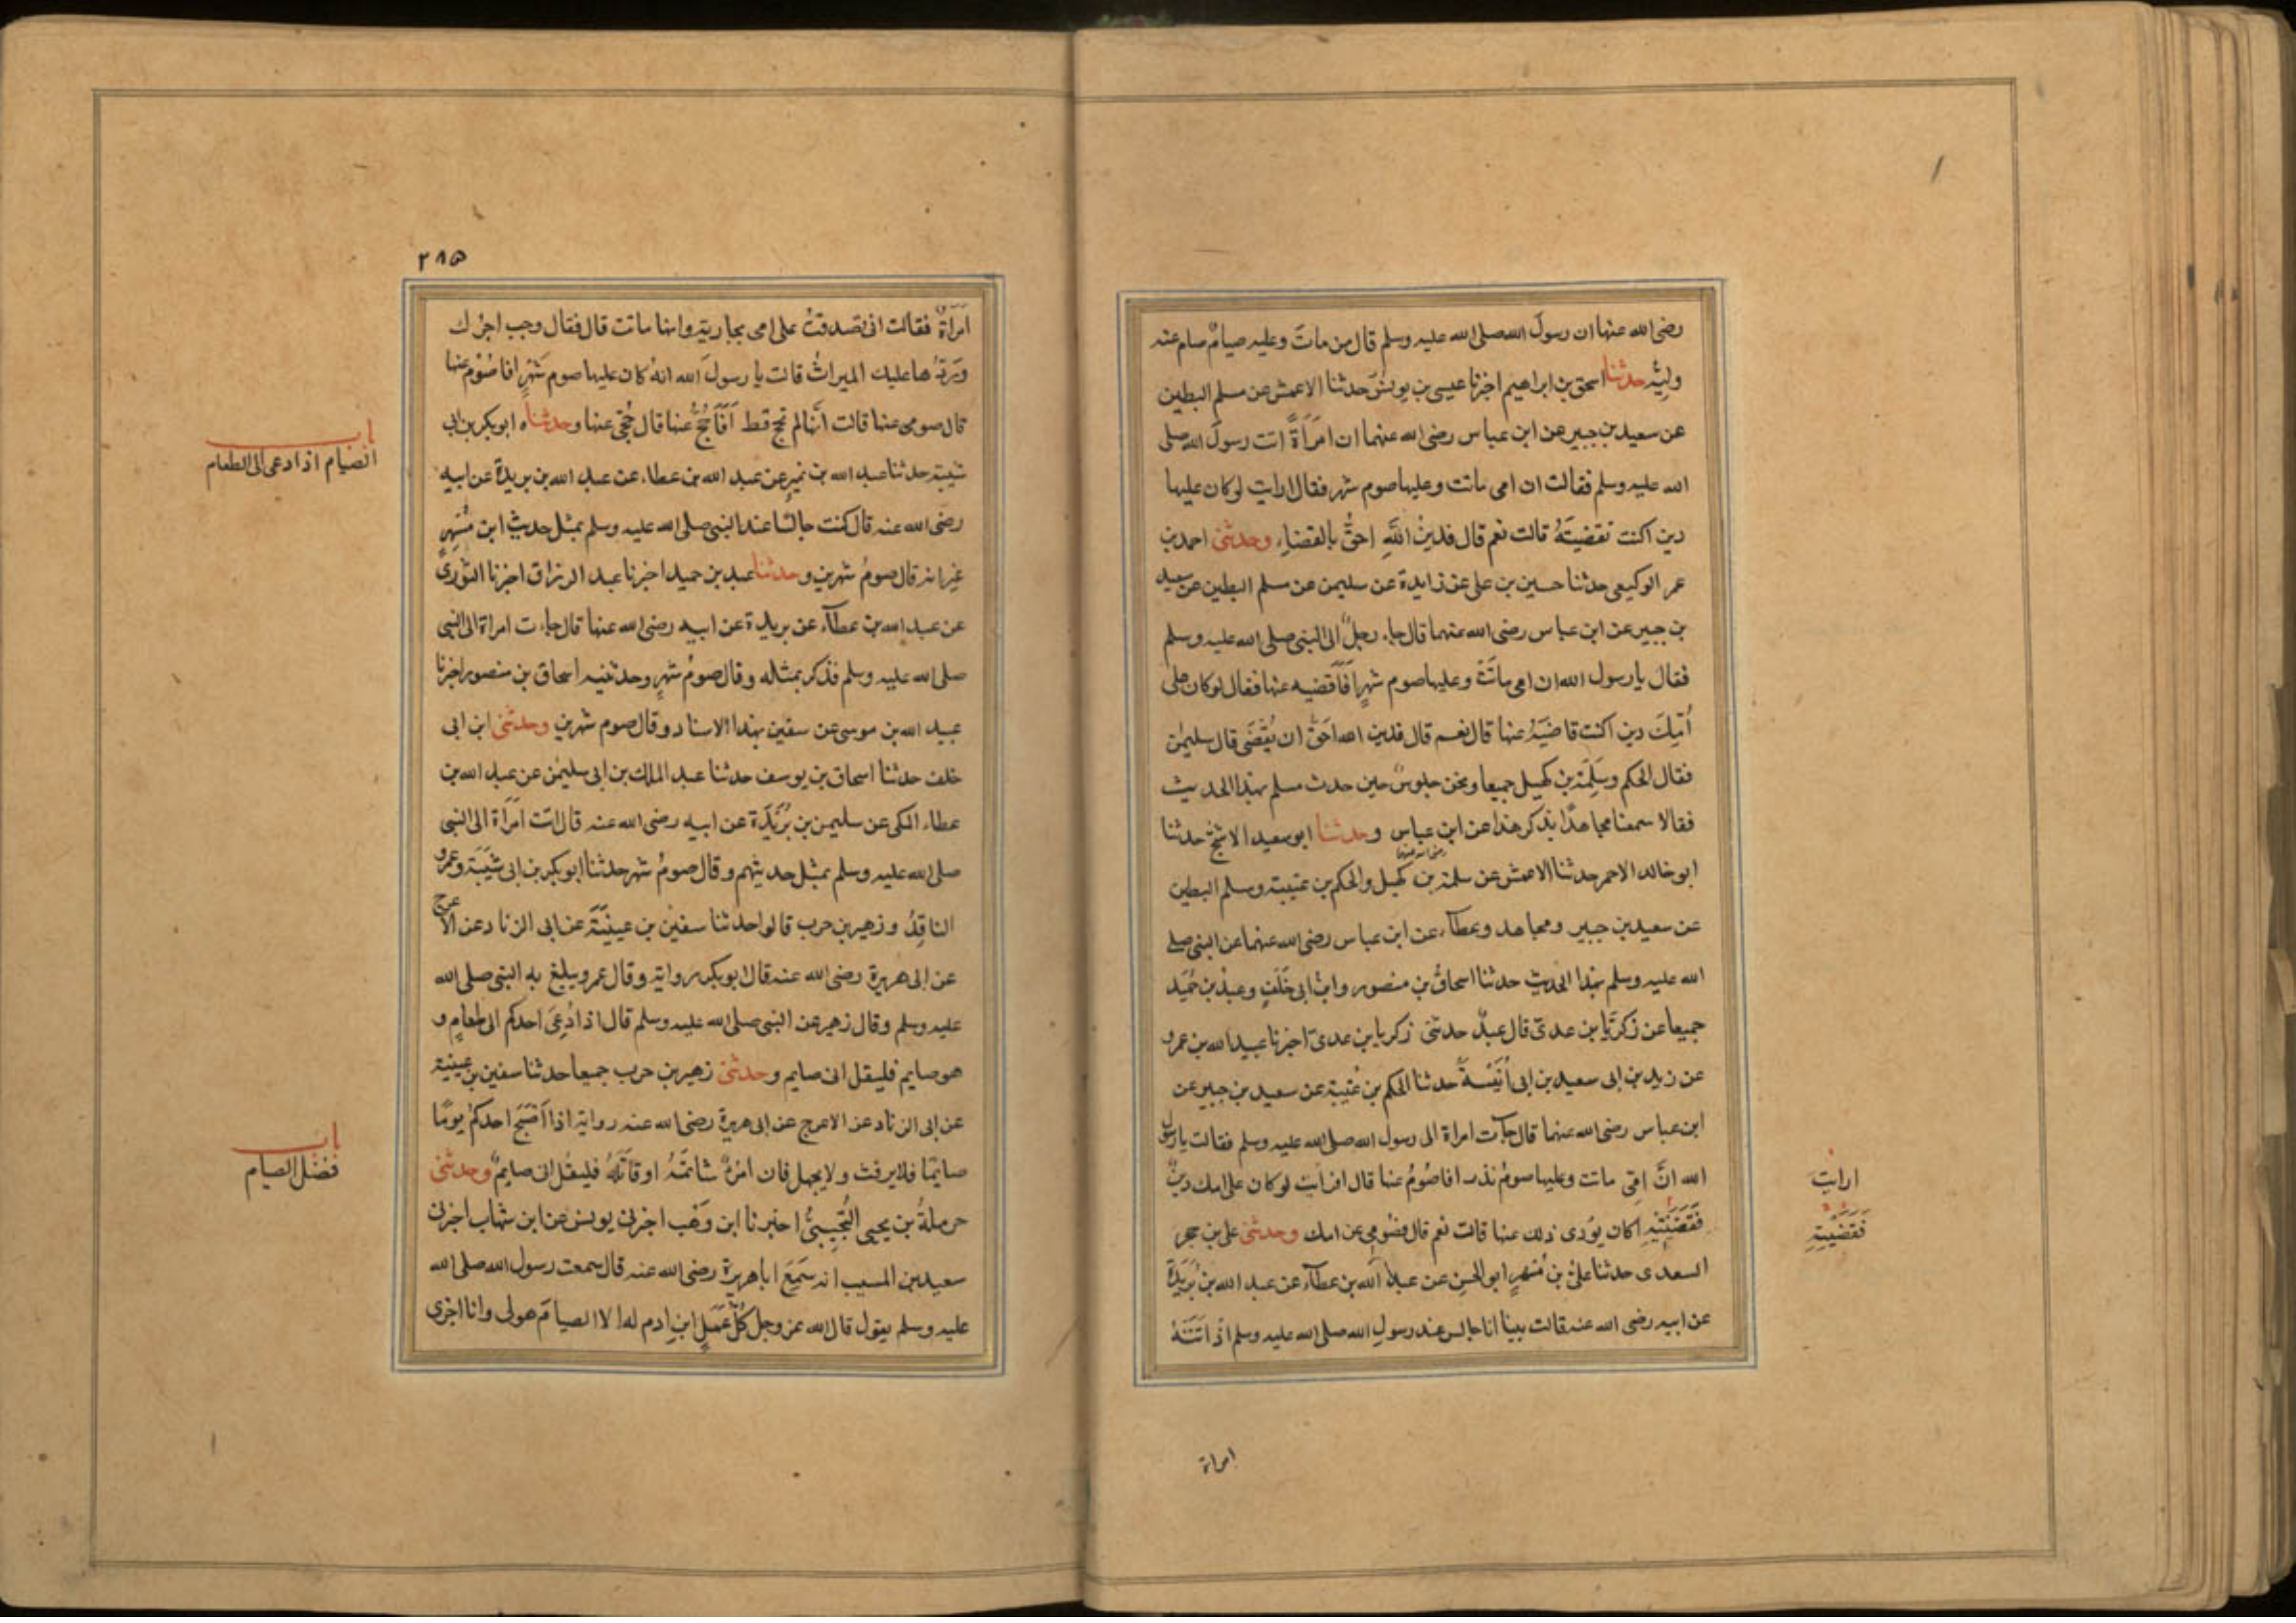 رضى الله عنها ان رسول الله صلى الله عليه وسلم قال من مات وعليه صيام صام عنه
وليه حدثنا اسحق بن ابراهيم اخبرنا عيسى بن يونس حدثنا الاعمش عن مسلم البطين
عن سعيد بن جبير عن ابن عباس رضى الله عنهما ان امرأة اتت رسول الله صلى
الله عليه وسلم فقالت ان امى ماتت وعليها صوم شهر فقال ارايت لو كان عليها
دين اكنت تقضيته قالت نعم قال فدين الله احق بالقضاء وحدثنى احمد بن
عمر الوكيعى حدثنا حسين بن على عن زايدة عن سليمن عن مسلم البطين عن سعيد
بن جبير عن ابن عباس رضى الله عنهما قال جاء رجل الى النبى صلى الله عليه وسلم
فقال يا رسول الله ان امى ماتت وعليها صوم شهر أفاقضيه عنها فقال لو كان على
أمك دين اكنت قاضيه عنها قال نعم قال فدين الله احق ان يقضى قال سليمن
فقال الحكم وسلمة بن كهيل جميعا ونحن جلوس حين حدث مسلم بهذا الحديث
فقالا سمعنا مجاهدا يذكر هذا عن ابن عباس رضى الله عنهما وحدثنا ابو سعيد الاشج حدثنا
ابو خالد الاحمر حدثنا الاعمش عن سلمة بن كهيل والحكم بن عتيبة ومسلم البطين
عن سعيد بن جبير ومجاهد وعطاء عن ابن عباس رضى الله عنهما عن النبى صلى
الله عليه وسلم بهذا الحديث حدثنا اسحاق بن منصور وابن ابى خلف وعبد بن حميد
جميعا عن زكريا بن عدى قال عبد حدثنى زكريا بن عدى اخبرنا عبيد الله بن عمرو
عن زيد بن ابى سعيد بن ابى أنيسة حدثنا الحكم بن عتيبة عن سعيد بن جبير عن
ابن عباس رضى الله عنهما قال جاءت امراة الى رسول الله صلى الله عليه وسلم فقالت يا رسول
الله ان امى ماتت وعليها صوم نذر افاصوم عنها قال افرأيت لو كان على امك دين
فقضيتيه اكان يؤدى ذلك عنها قالت نعم قال فصومى عن امك وحدثنى على بن حجر
السعدى حدثنا على بن مسهر ابو الحسن عن عبد الله بن عطاء عن عبد الله بن بريدة
عن ابيه رضى الله عنه قالت بينا انا جالس عند رسول الله صلى الله عليه وسلم اذ اتته
ارايت
فقضيتيه
امراة
۲۸۵
امرأة فقالت انى تصدقت على امى بجارية وانها ماتت قال فقال وجب اجرك
وردها عليك الميراث قالت يا رسول الله انه كان عليها صوم شهر افاصوم عنها
قال صومى عنها قالت أنها لم تحج قط أفأحج عنها قال حجى عنها وحدثناه ابو بكر بن ابى
شيبة حدثنا عبد الله بن نمير عن عبد الله بن عطاء عن عبد الله بن بريدة عن ابيه
رضى الله عنه قال كنت جالسا عند النبى صلى الله عليه وسلم بمثل حديث ابن مسهر
غير انه قال صوم شهرين وحدثنا عبد بن حميد اخبرنا عبد الرزاق اخبرنا الثورى
عن عبد الله بن عطاء عن بريدة عن ابيه رضى الله عنها قال جاءت امراة الى النبى
صلى الله عليه وسلم فذكر بمثله وقال صوم شهر وحدثنيه اسحاق بن منصور اخبرنا
عبيد الله بن موسى عن سفين بهذا الاسناد وقال صوم شهرين وحدثنى ابن ابى
خلف حدثنا اسحاق بن يوسف حدثنا عبد الملك بن ابى سليمن عن عبد الله بن
عطاء المكى عن سليمن بن بريدة عن ابيه رضى الله عنه قال اتت امرأة الى النبى
صلى الله عليه وسلم بمثل حديثهم وقال صوم شهر حدثنا ابو بكر بن ابى شيبة وعمرو
الناقد وزهير بن حرب قالوا حدثنا سفين بن عيينة عن ابى الزناد عن الاعرج
عن ابى هريرة رضى الله عنه قال ابو بكر رواية وقال عمرو يبلغ به النبى صلى الله
عليه وسلم وقال زهير عن النبى صلى الله عليه وسلم قال اذا دعى احدكم الى طعام و
هو صايم فليقل انى صايم وحدثنى زهير بن حرب جميعا حدثنا سفين بن عيينة
عن ابى الزناد عن الاعرج عن ابى هريرة رضى الله عنه رواية اذا أصبح احدكم يوما
صايما فلا يرفث ولا يجهل فان امرؤ شاتمه او قاتله فليقل انى صايم وحدثنى
حرملة بن يحيى التجيبى اخبرنا ابن وهب اخبرنى يونس عن ابن شهاب اخبرنى
سعيد بن المسيب انه سمع ابا هريرة رضى الله عنه قال سمعت رسول الله صلى الله
عليه وسلم يقول قال الله عز وجل كل عمل ابن ادم له الا الصيام هو لى وانا اجزى
باب
الصيام اذا دعى الى الطعام
باب
فضل الصيام